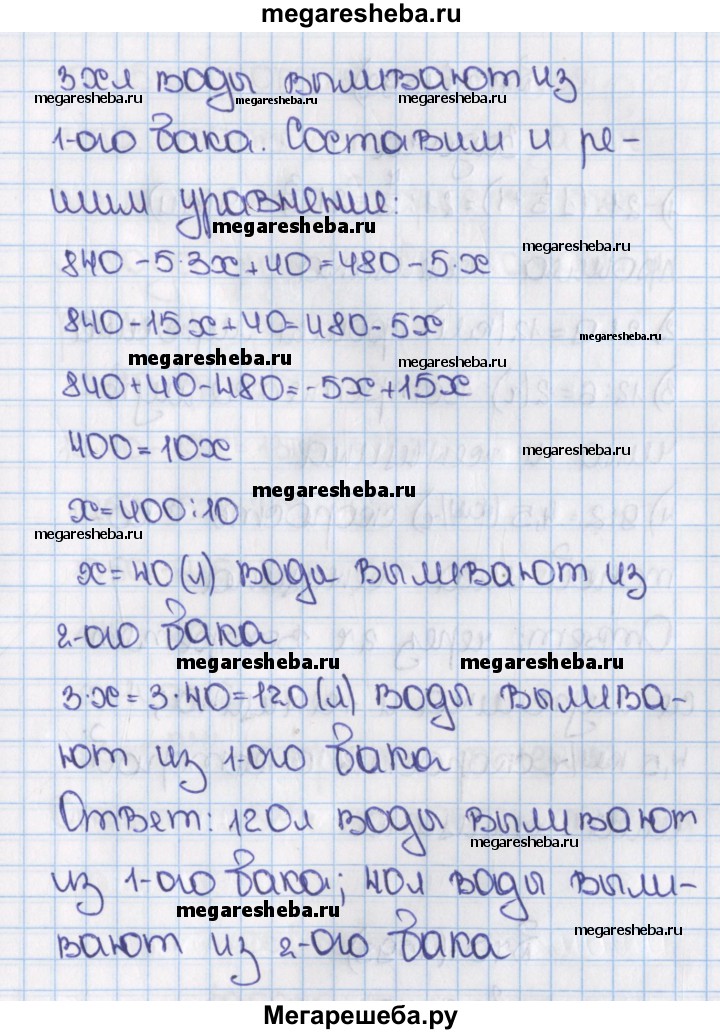 megaresheba.ru
3хл воды выливают из
megaresheba.ru megaresheba.ru megaresheba.ru
1-ого бака. Составим и ре-
шим уравнение:
megaresheba.ru
megaresheba.ru
840-5·3х+40=480-5·х
840-15х+40=480-5х
megaresheba.ru megaresheba.ru
840+40-480=-5х+15х
400=10х
megaresheba.ru
megaresheba.ru
х=400:10
megaresheba.ru
х=40(л) воды выливают из
2-ого бака
megaresheba.ru megaresheba.ru
3·х=3·40=120(л) воды вылива-
ют из 1-ого бака
Ответ: 120л воды выливают
megaresheba.ru
из 1-ого бака; 40л воды выли-
megaresheba.ru
megaresheba.ru
вают из 2-ого бака
Мегарешеба.ру